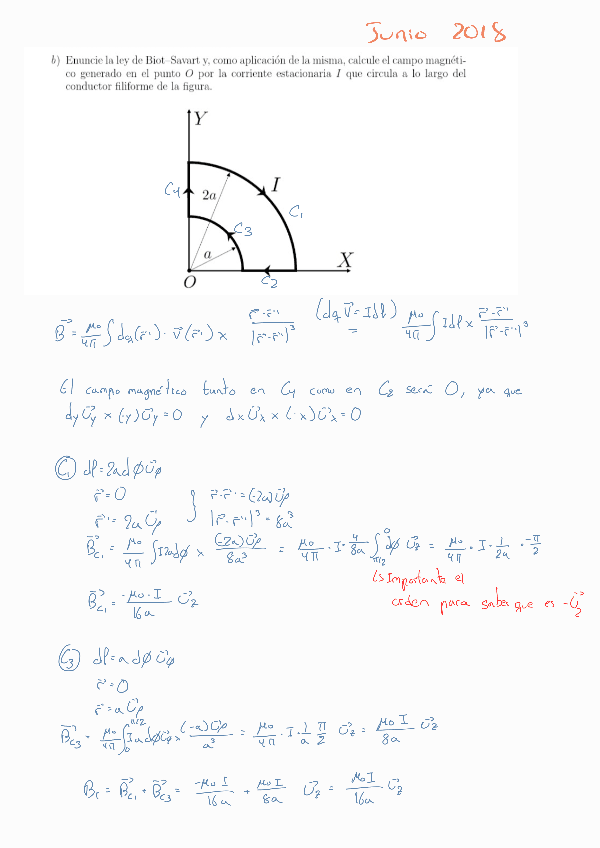 Junio 2018
b) Enuncie la ley de Biot–Savart y, como aplicación de la misma, calcule el campo magnéti-
co generado en el punto O por la corriente estacionaria I que circula a lo largo del
conductor filiforme de la figura.
Y
I
C4
2a
C1
C3
a
X
O
C2
B⃗ = μ0/4π ∫ dq(r⃗')· v⃗(r⃗') × (r⃗-r⃗')/|r⃗-r⃗'|³ (dq v⃗ = Idl) = μ0/4π ∫ Idl × (r⃗-r⃗')/|r⃗-r⃗'|³
El campo magnético tanto en C4 como en C2 será 0, ya que
dy u⃗y × (-y) u⃗y = 0 y dx u⃗x × (-x) u⃗x = 0
C1 dl = 2adϕ u⃗φ
r⃗ = 0
r⃗' = 2a u⃗ρ
r⃗-r⃗' = (-2a) u⃗ρ
|r⃗-r⃗'|³ = 8a³
B⃗C1 = μ0/4π ∫ I2adϕ × (-2a) u⃗ρ/8a³ = μ0/4π · I · 4/8a ∫π/2 0 dϕ u⃗z = μ0/4π · I · 1/2a · -π/2
↳ Importante el
orden para saber que es -u⃗z
B⃗C1 = -μ0·I/16a u⃗z
C3 dl = a dϕ u⃗φ
r⃗ = 0
r⃗ = a u⃗ρ
B⃗C3 = μ0/4π ∫0 π/2 I a dϕ u⃗φ × (-a) u⃗ρ/a³ = μ0/4π · I · 1/a π/2 u⃗z = μ0 I/8a u⃗z
BT = B⃗C1 + B⃗C3 = -μ0 I/16a + μ0 I/8a u⃗z = μ0 I/16a · u⃗z